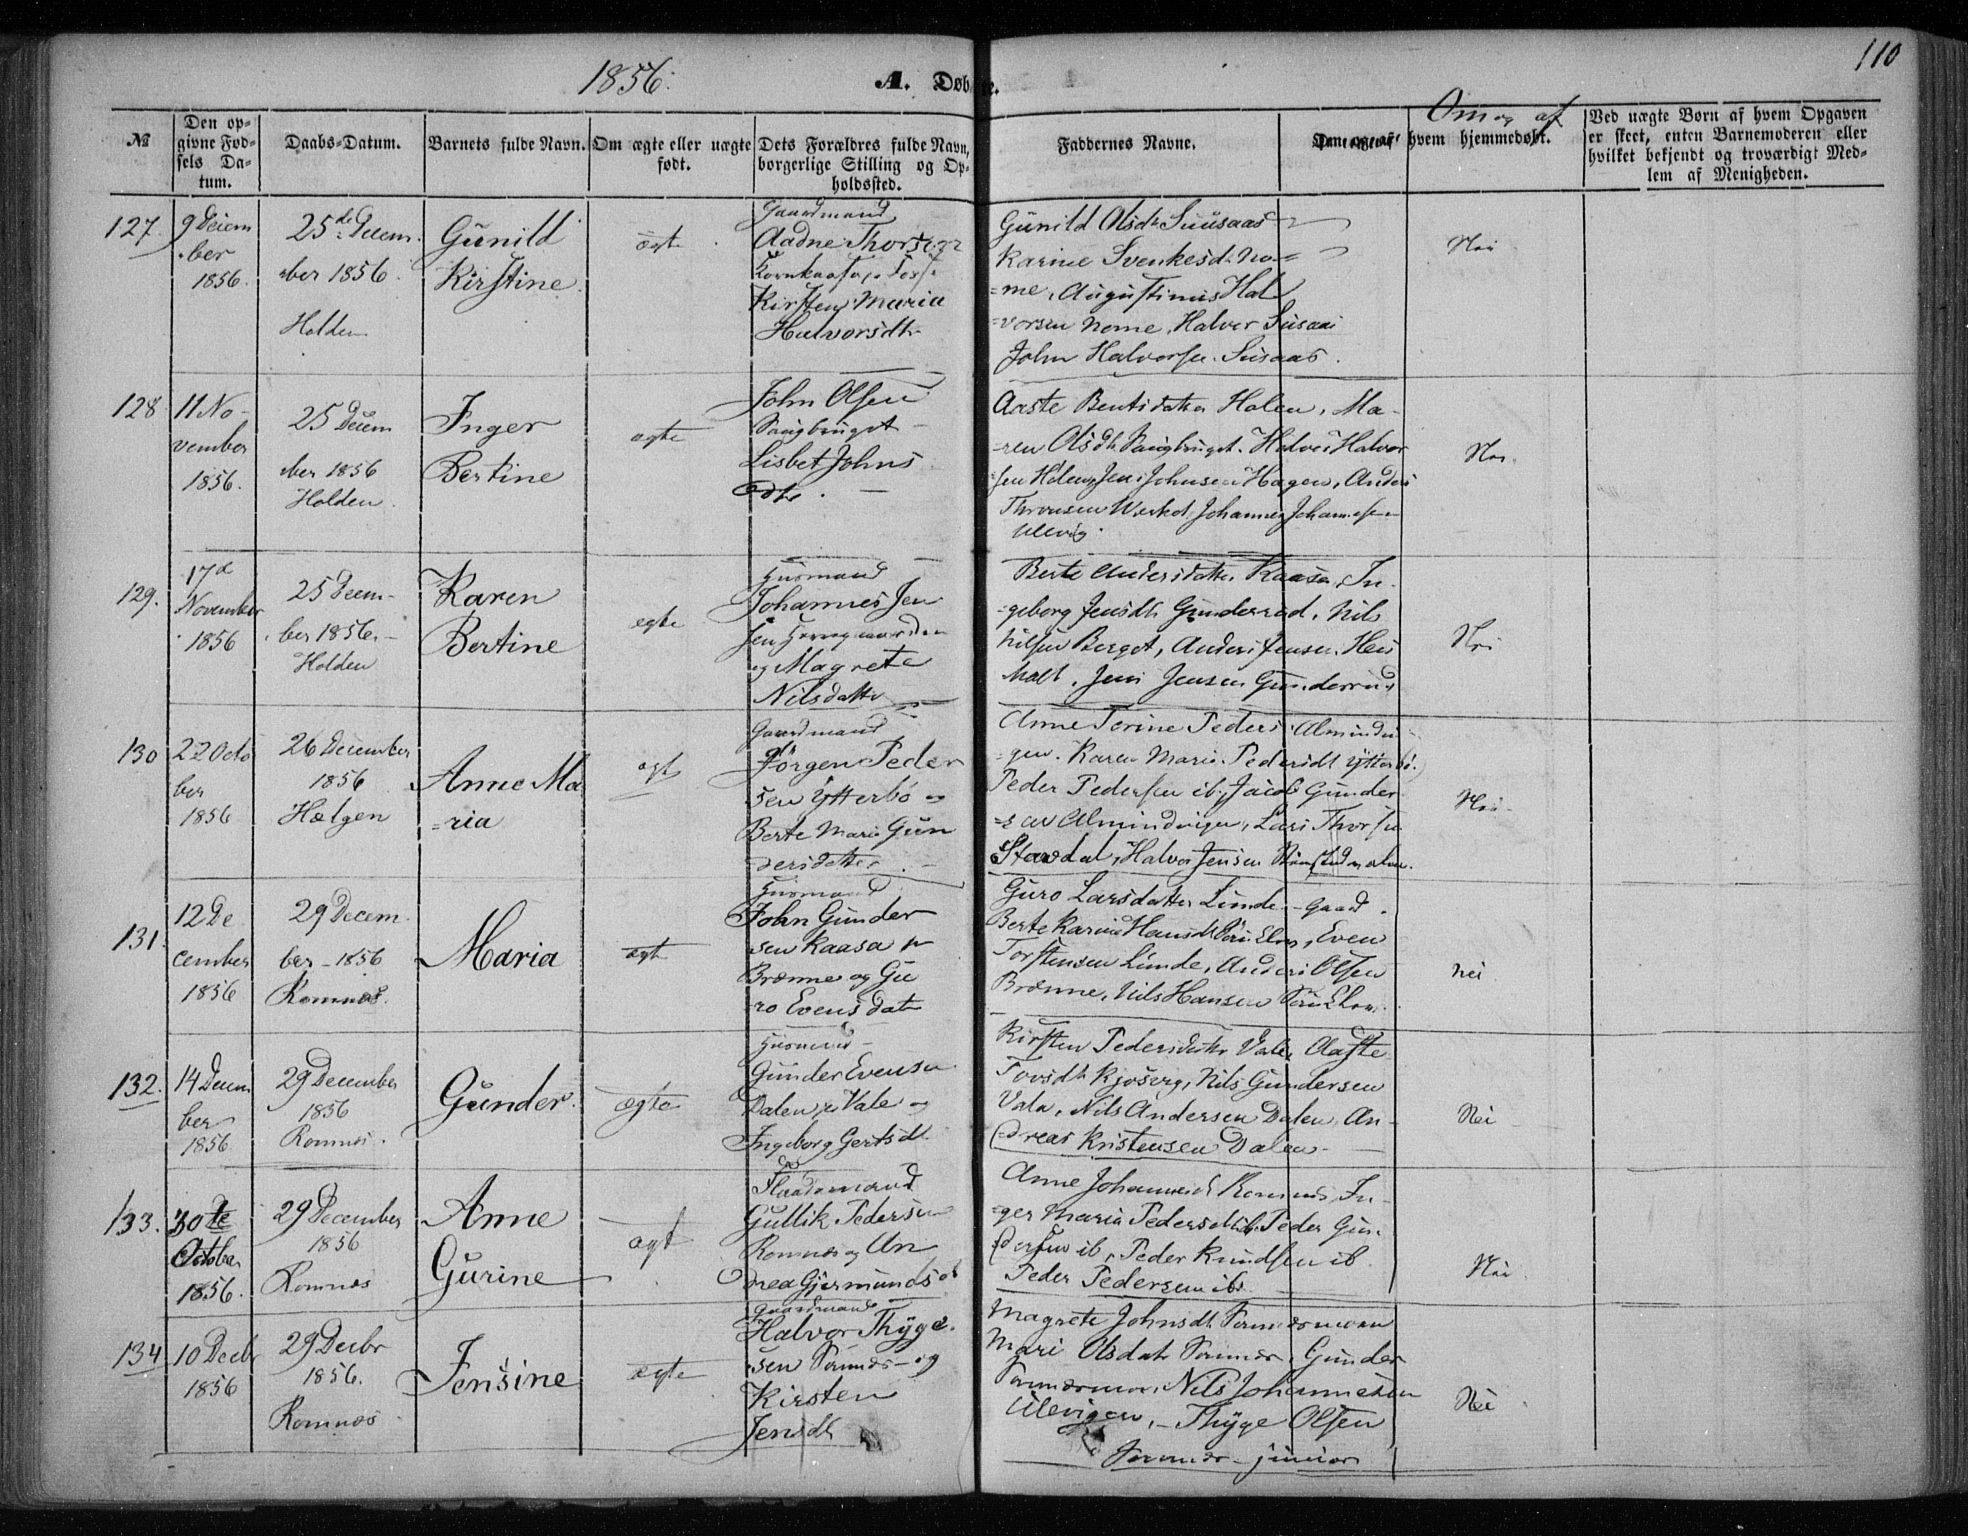 1856.
A. Døbte.
110
№
Den op-
givne Fød-
sels Da-
tum.
Daabs-Datum.
Barnets fulde Navn.
Om ægte eller uægte
født.
Dets Forældres fulde Navn,
borgerlige Stilling og Op-
holdssted.
Faddernes Navne.
Om og af
hvem hjemmedøbt.
Ved uægte Børn af hvem Opgaven
er skeet, enten Barnemoderen eller
hvilket bekjendt og troværdigt Med-
lem af Menigheden.
127.
9 Decem
ber
1856.
25de Decem
ber 1856.
Holden
Gunild
Kirstine
ægte
Gaardmand
Aadne Thorsen
Kirsten Maria
Halvorsdtr
Gunild Olsdtr Suusaas
Karine Svenkesd. No-
=me, Augustinus Hal
=vorsen Nome, Halvor Susaas
John Halvorsen Susaas.
Nei
128
11 No-
vember
1856.
25 Decem
ber 1856
Holden.
Inger
Bertine
ægte
John Olsen
Saugbruget
Lisbet Johns
dtr.
Aaste Bentsdatter Holen, Ma-
=ren Olsdtr Saugbruget. Halvor Halvor
sen Holen, Jens Johnsen Hagen, Anders
Thronsen Johannes Johannesen
Ulevig.
Nei
129.
17d
November
1856
25 Decem-
ber 1856.
Holden
Karen
Bertine
ægte
Husmand
Johannes Jen
sen
og Magrete
Nilsdatter
Berte Andersdatter Kaasa, In-
=geborg Jensdtr Gunderud, Nils
Nilsen Berget, Anders Jensen Hei
Jens Jensen Gunderud
Nei
130
22 Octo
ber
1856
26 December
1856
Hælgen
Anne Ma
=ria
ægt
Gaardmand
Jörgen Peder
sen Ytterbö og
Berte Marie Gun
dersdatter
Anne Torine Peders Almindin
gen. Karen Marie Pedersdt Ytterbö.
Peder Pedersen ib, Jacob Gunder
=sen Almindingen, Lars Thorsen
Stavdal, Halvor Jensen
Nei
131.
12 De
cember
1856
29 Decem
ber 1856
Romnes.
Maria
ægte
Husmand
John Gunder
sen Kaasa pr
Brænne og Gu
ro Evensdatr
Guro Larsdatter Lunde-gaard.
Berte Karine Hansdtr, Even
Torstensen Lunde, Anders Olsen
Brænne, Nils Hansen
Nei
132.
14 Decem
ber
1856
29 December
1856
Romnes.
Gunder.
ægte
Husmand
Gunder Evensen
Dalen pr Vale og
Ingeborg Gertsdt
Kirsten Pedersdatter Vale, Aaste
Tovsdtr, Nils Gundersen
Vala, Nils Andersen Dalen, An-
dreas Kristensen Dalen
Nei
133.
30te
October
1856.
29 December
1856
Romnæs
Anne
Gurine
ægt
Gaardmand
Gullik Pedersen
Romnæs og An
nea Gjermundsdt
Anne Johannesdt Romnæs, In-
ger Maria Pedersdtr ib, Peder Gun-
dersen ib, Peder Knudsen ib
Peder Pedersen ib.
Nei
134
10 Decbr
1856
29 Decbr
1856.
Romnæs
Jensine
ægte
Gaardmand
Halvor Thyge-
sen Sannæs og
Kirsten
Jensdt
Magrete Johnsdt
Mari Olsdatr Sannæs, Gunder
Nils Johannesen
Ulevigen, Thyge Olsen
Sannæs junior
Nei